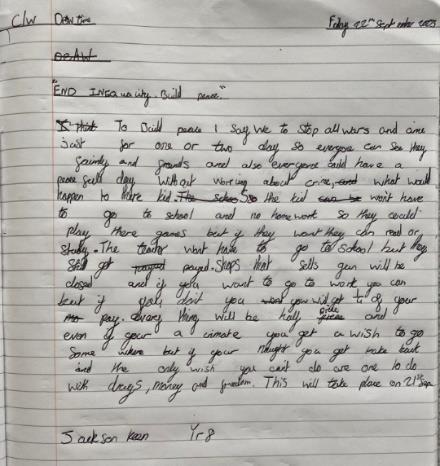 C/W Draw time Friday 22nd September 2023
"END INEquality. Build peace."
To Build peace I say we to stop all wars and crime
just for one or two day so everyone can see they
family and friends and also everyone could have a
peace full day without worring about crime, what would
happen to there kid. So the kid wont have
to go to school and no homework so they could
play there games but if they want they can read or
study. The teacher wont have to go to school but they
still get payed. Shops that sells gun will be
closed and if you want to go to work you can
but if you dont you will get of your
pay. Every thing will be half price and
even if your a you get a wish to go
some where but if your you get back
and the only wish you cant do are one to do
with drugs, money and freedom. This will take place on 21st Sep
Jackson Keen Yr8